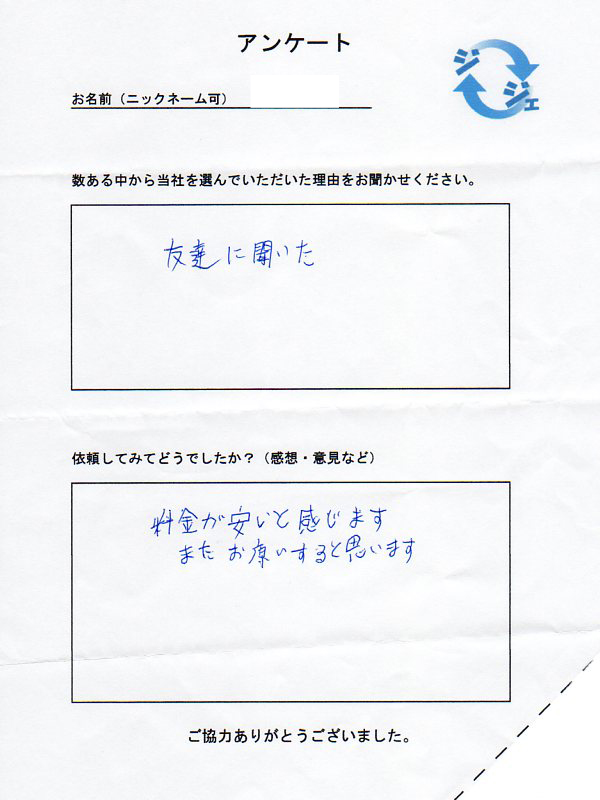 アンケート
ジジェ
お名前（ニックネーム可）
数ある中から当社を選んでいただいた理由をお聞かせください。
友達に聞いた
依頼してみてどうでしたか？（感想・意見など）
料金が安いと感じます
またお願いすると思います
ご協力ありがとうございました。